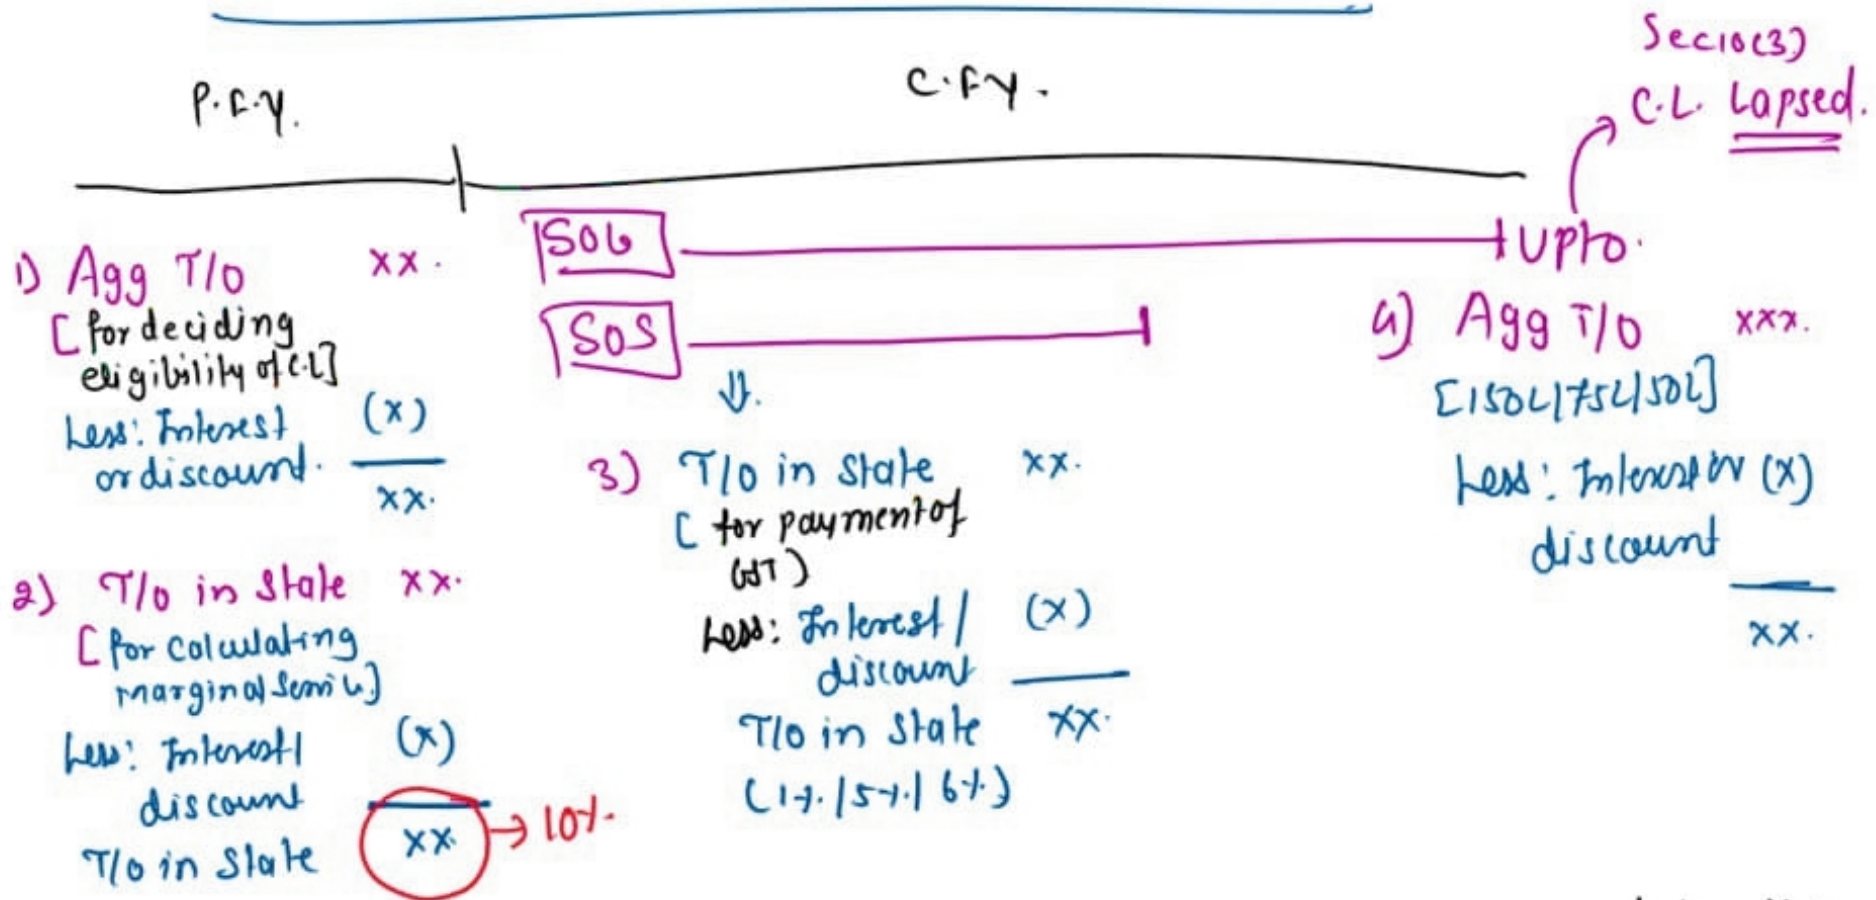 P.F.Y.
C.F.Y.
Sec10(3)
C.L. Lapsed.
SOG
Upto.
SOS
1) Agg T/O xx.
[for deciding
eligibility of C.L]
Less: Interest (x)
or discount.
xx.
2) T/o in State xx.
[for calculating
marginal
Less: Interest/ (x)
discount
T/o in State xx. → 10%.
3) T/o in State xx.
[for payment of
GST)
Less: Interest/ (x)
discount
T/o in State xx.
(1%/5%/6%)
4) Agg T/O xxx.
[150L/75L/50L]
Less: Interest or (x)
discount
xx.